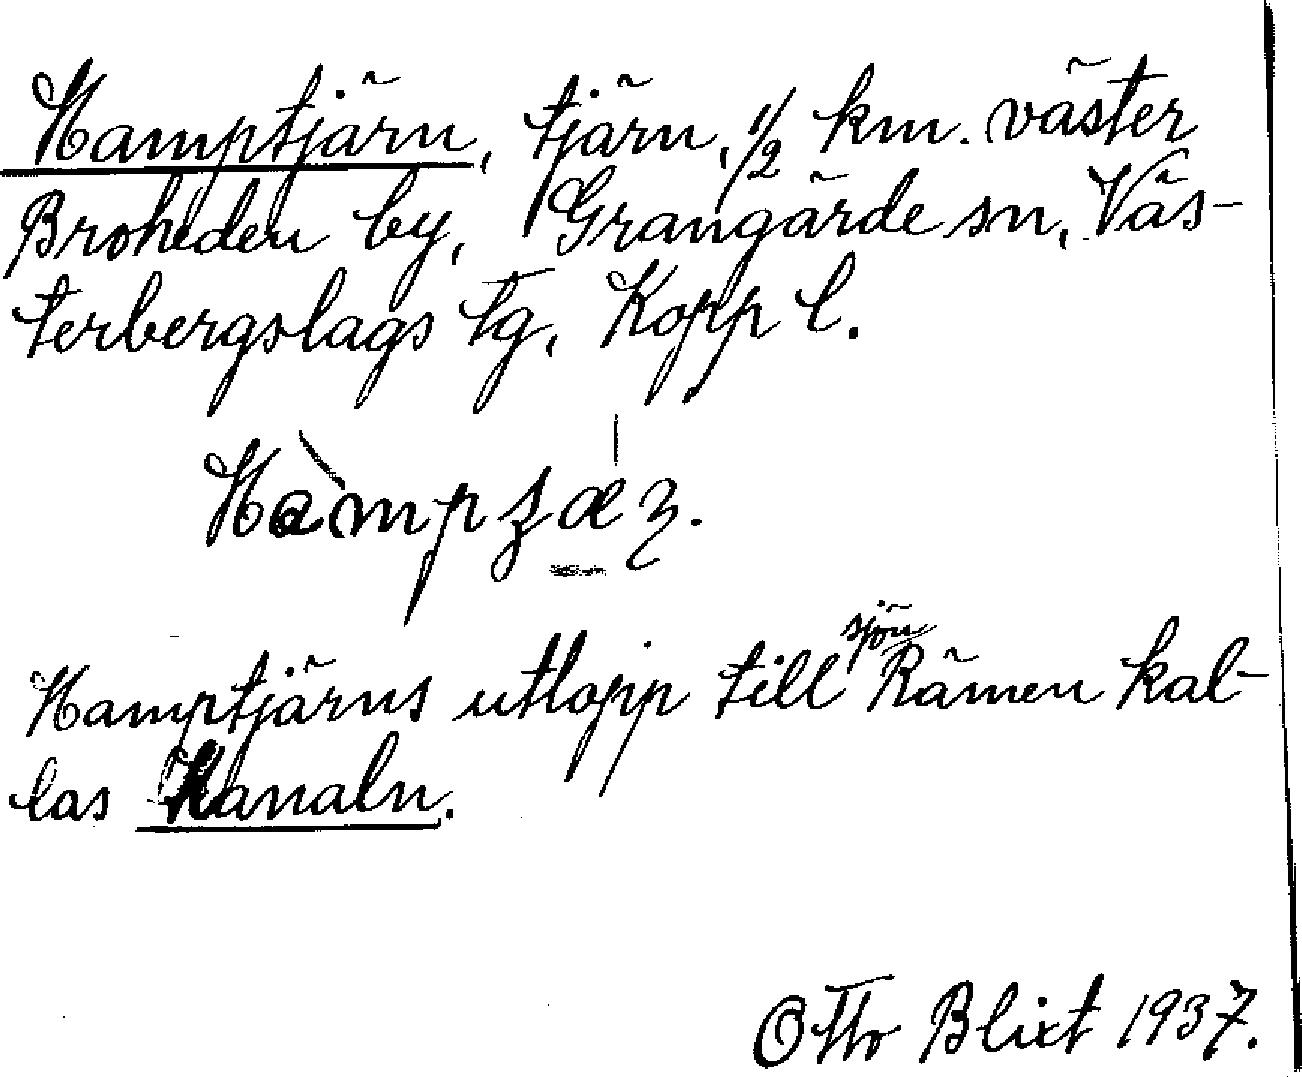 Hamptjärn, tjärn, 1/2 km. väster
Broheden by, Grangärde sn, Väs-
terbergslags tg, Kopp l.
Hampʒæʒ.
Hamptjärns utlopp till sjön Rämen kal-
las Kanaln.
Otto Blixt 1937.